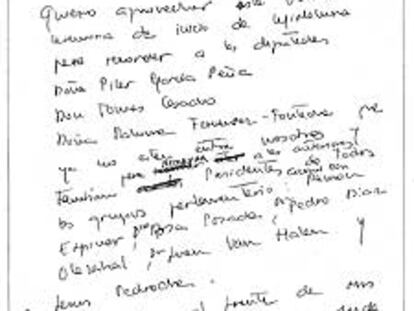 Quiero aprovechar este
semana de inicio de legislatura
para recordar a los diputados
Doña Pilar García Peña
Don Tomas
Doña Paloma Fernandez-Fontecha que
ya no estan entre nosotros y
tambien para a los anteriores
Presidentes de todos
los grupos parlamentarios: Ramon
Espinar, Dª Rosa Posada, D. Pedro Diez
Olazabal, D. Juan Van-Halen y
Jesus Pedroche.
al frente de mis